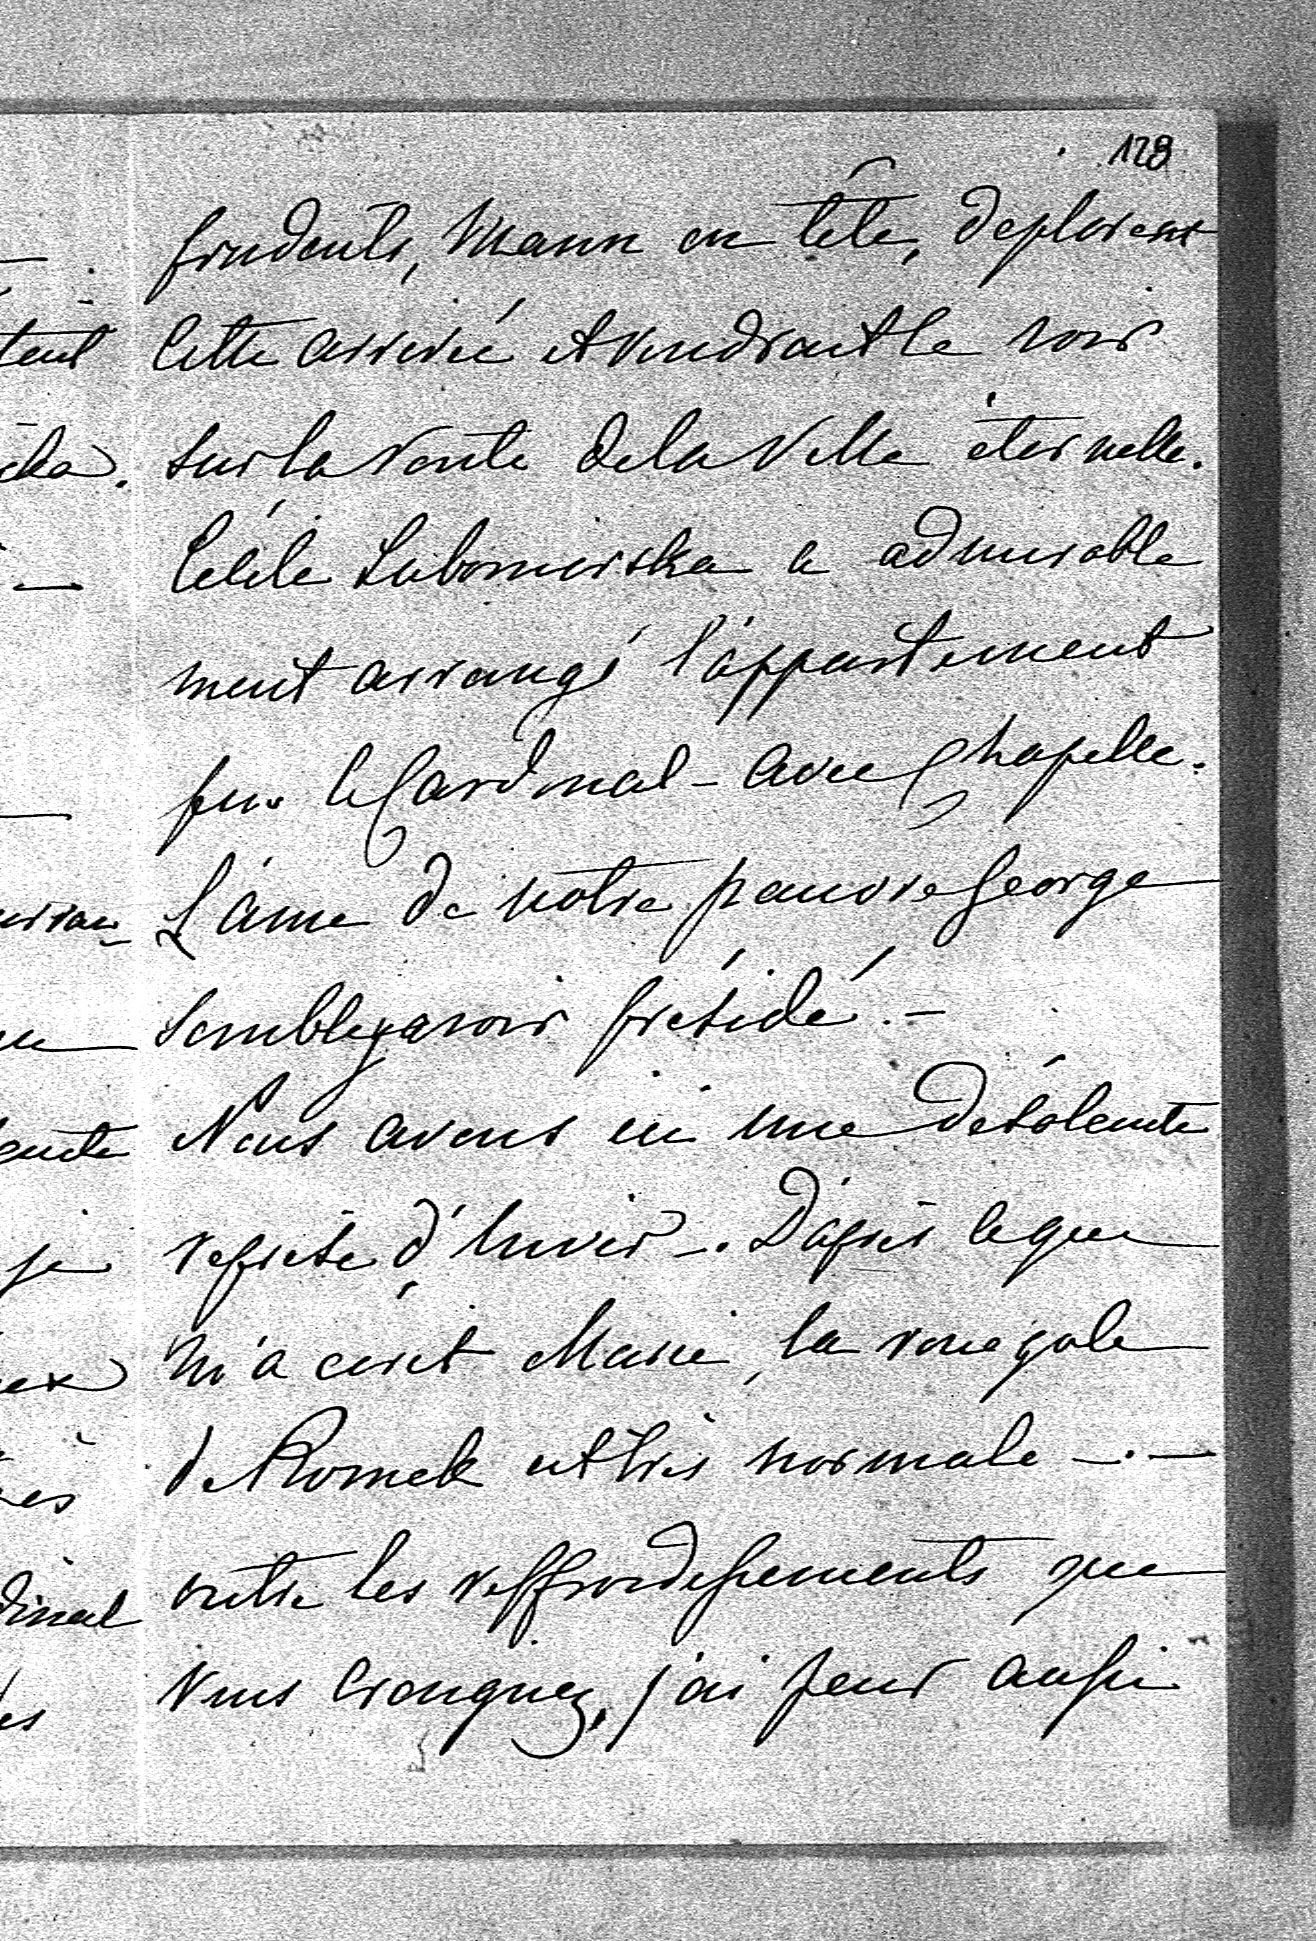 128
prudents, Mann en tête, deplorent
cette arrivée et voudrait le voir
sur la route de la Ville éternelle.
Cécile Lubomirska a admirable
ment arrangé l'appartement
pur le Cardinal - avec Chapelle.
L'âme de notre pauvre George
semble y avoir présidé. -
Nous avons ici une désolante
reprise d'hiver -. D'après ce que
m'a écrit Marie, la
de Romek est très normale -. -
outre les reffroidissements que
vous craignez, j'ai peur aussi
tent
cka.
je
ex
dinal